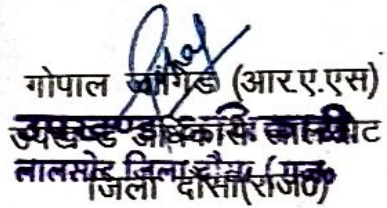 गोपाल जांगिड (आर.ए.एस)
उपखण्ड अधिकारी लालसोट
जिला दौसा(राज0)